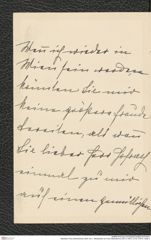 Wenn ich wieder in
Wien sein werde
könnten Sie mir
keine größere Freude
bereiten, als wenn
Sie lieber Herr
einmal zu mir
auf einen gemütlichen